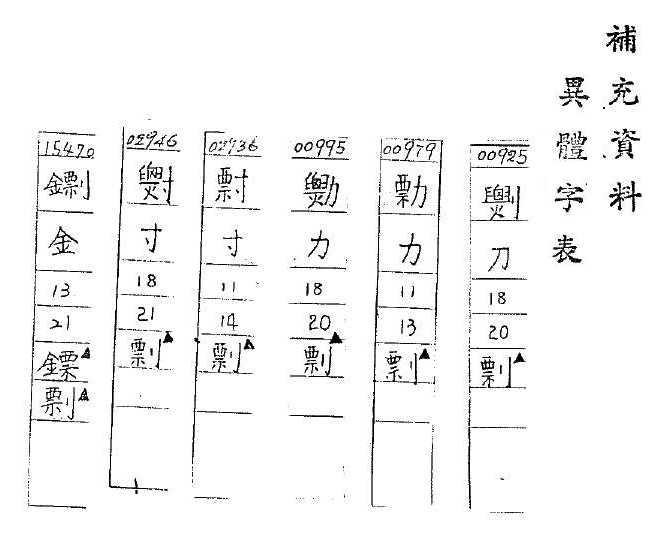 補充資料
異體字表
00925
刀
18
20
剽▲
00979
勡
力
11
13
剽▲
00995
力
18
20
剽▲
02936
寸
11
14
剽▲
02946
寸
18
21
剽▲
15470
金
13
21
鏢▲
剽▲